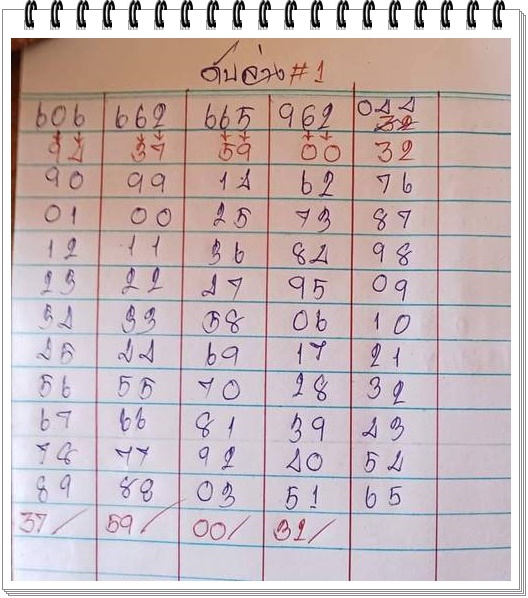 ดับล่าง #1
606 662 665 962 044
32
94 37 59 00 32
90 99 14 62 76
01 00 25 73 87
12 11 36 84 98
23 22 47 95 09
34 33 58 06 10
45 44 69 17 21
56 55 70 28 32
67 66 81 39 43
78 77 92 40 54
89 88 03 51 65
37/ 59/ 00/ 32/